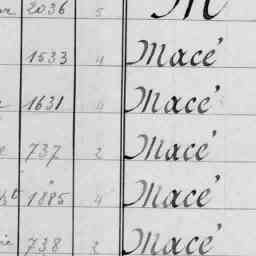 2036 5 M
1533 4 Macé
1631 Macé
737 2 Macé
1885 4 Macé
738 2 Macé